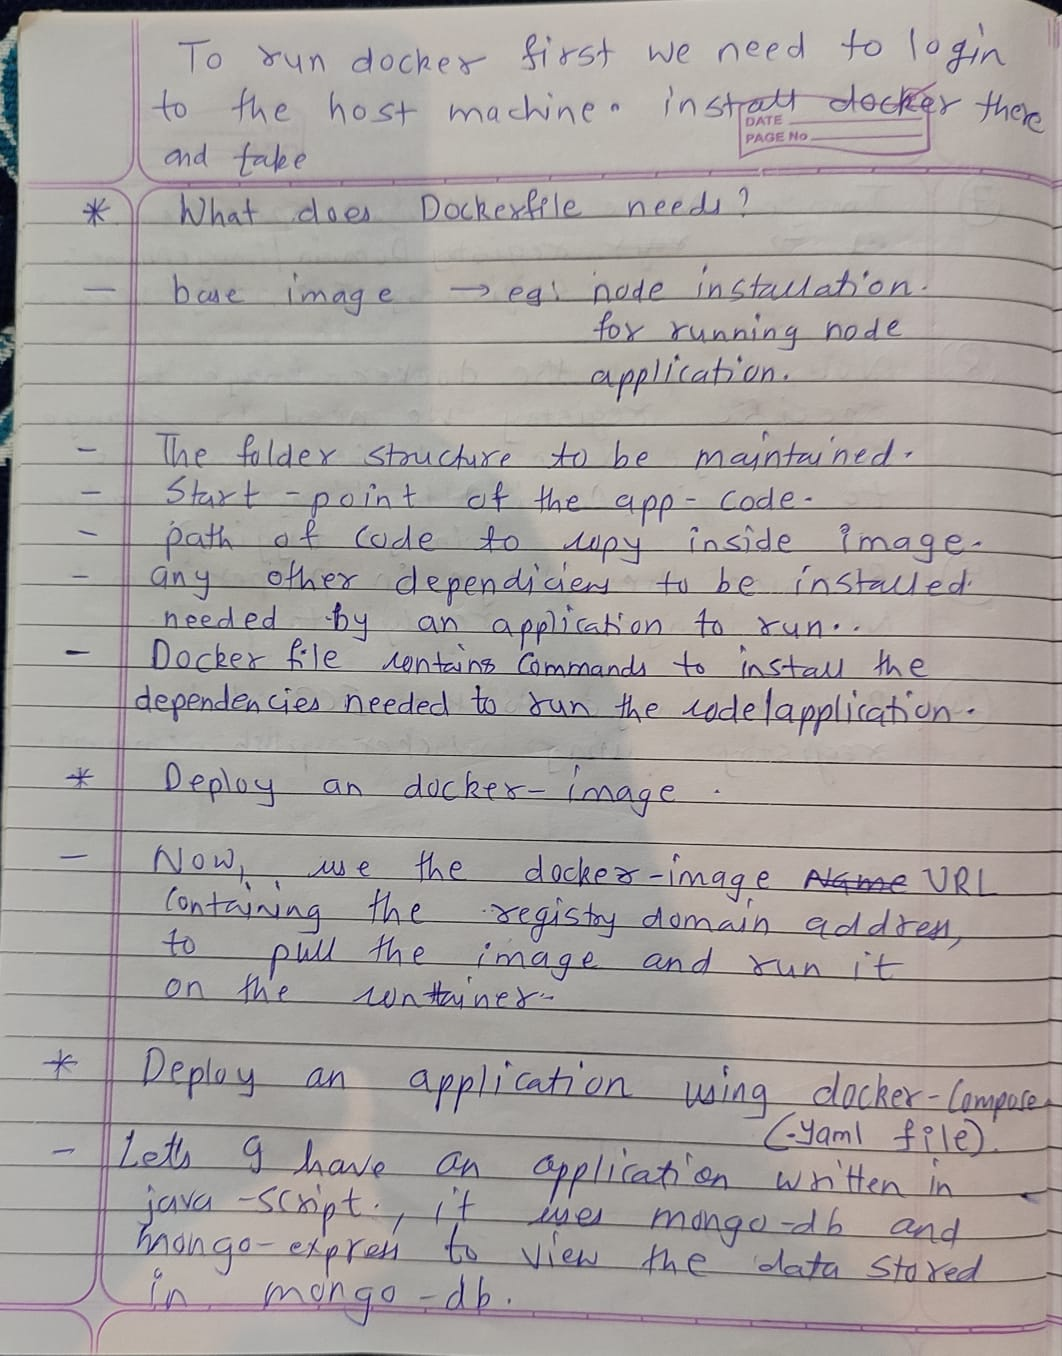 To run docker first we need to login
to the host machine. install docker there
and take
DATE
PAGE No
* What does Dockerfile needs?
- base image → eg: node installation.
for running node
application.
- The folder structure to be maintained.
- Start-point of the app-code.
- path of code to copy inside image.
- any other dependicies to be installed
needed by an application to run..
- Docker file contains commands to install the
dependencies needed to run the code/application.
* Deploy an docker-image.
- Now, use the docker-image Name URL
containing the registry domain address,
to pull the image and run it
on the container.
* Deploy an application using docker-compose
(.yaml file).
- Lets I have an application written in
java-script., it uses mongo-db and
mongo-express to view the data stored
in mongo-db.